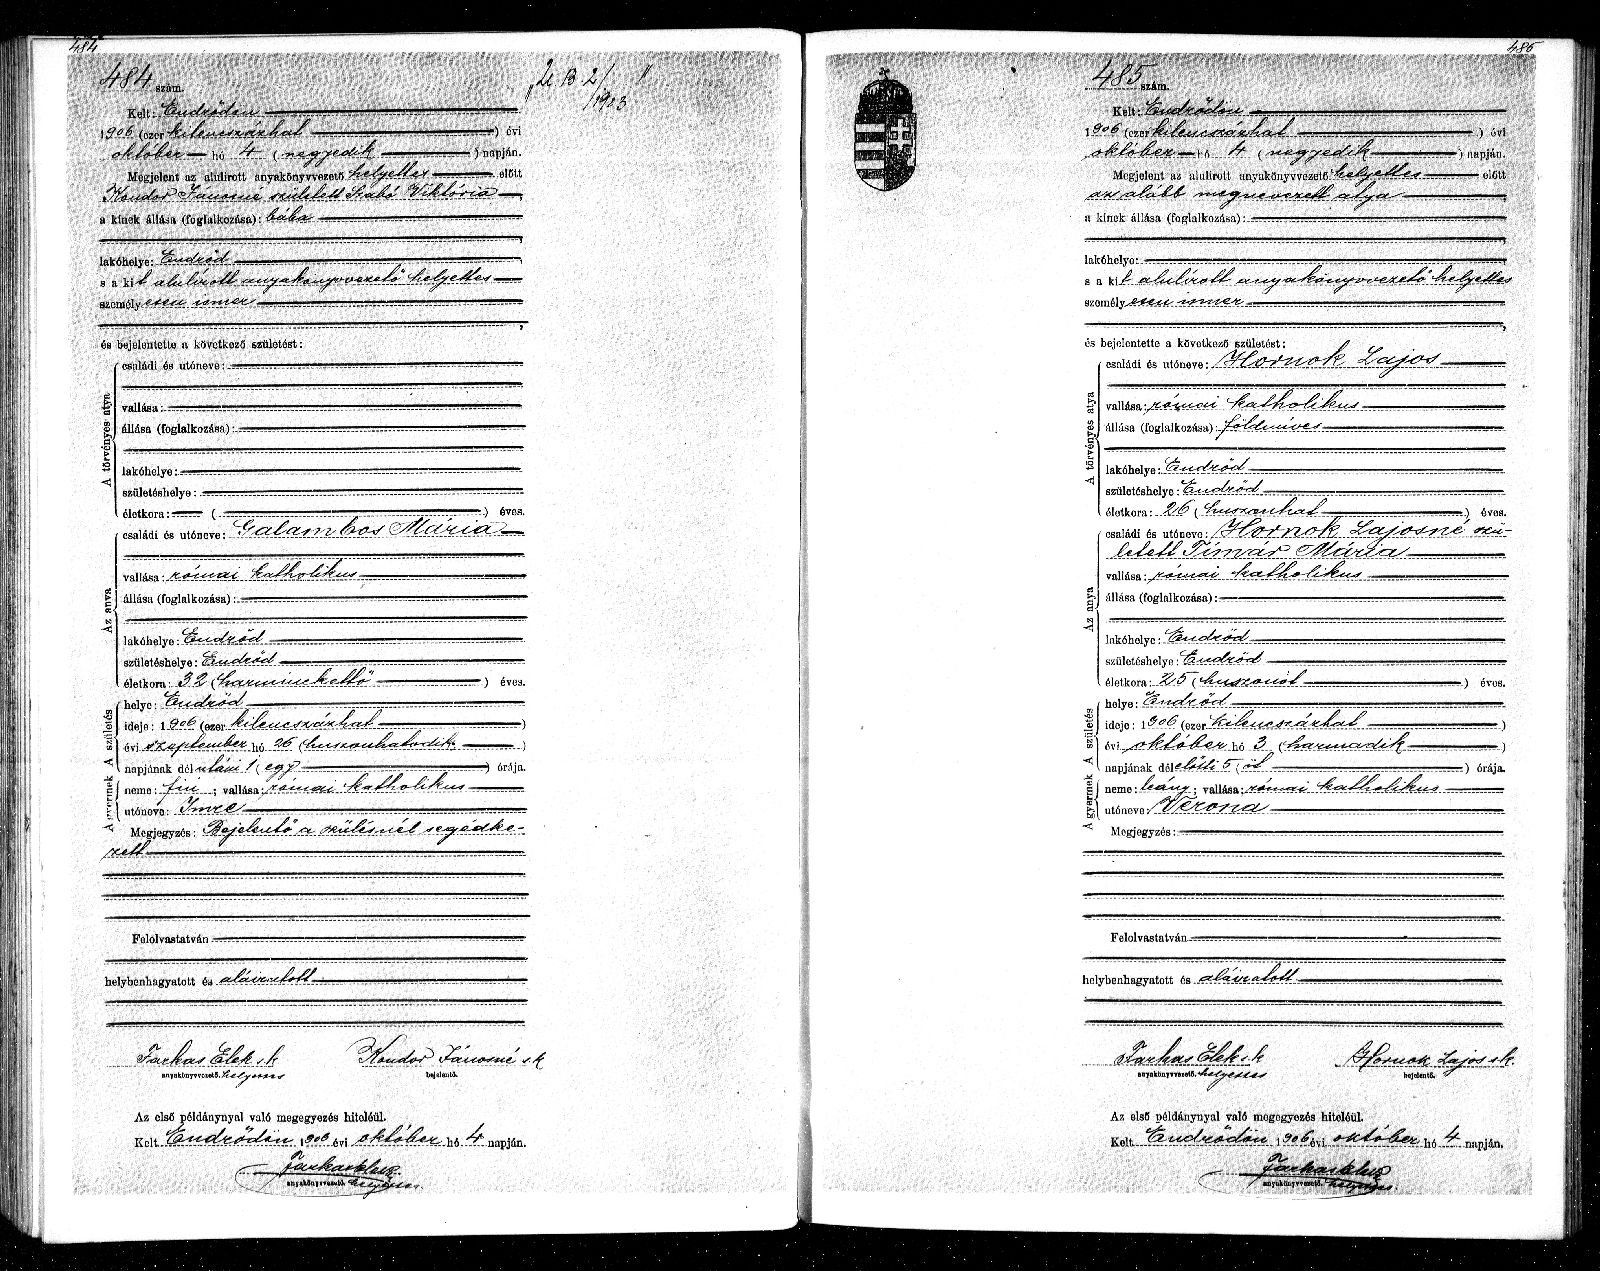 484
484 szám.
Kelt: Endrődön
1906 (ezer kilencszázhat) évi
október hó 4 (negyedik) napján.
Megjelent az alulirott anyakönyvvezető helyettes előtt
Kondor Jánosné született Szabó Viktória,
a kinek állása (foglalkozása): bába
lakóhelye: Endrőd
s a kit alulírott anyakönyvvezető helyettes
személyesen ismer
és bejelentette a következő születést:
A törvényes atya
családi és utóneve:
vallása:
állása (foglalkozása):
lakóhelye:
születéshelye:
életkora: ( ) éves.
Az anya
családi és utóneve: Galambos Mária
vallása: római katholikus
állása (foglalkozása):
lakóhelye: Endrőd
születéshelye: Endrőd
életkora: 32 (harminckettő) éves.
A születés
helye: Endrőd
ideje: 1906 (ezer kilencszázhat)
évi szeptember hó 26 (huszonhatodik)
napjának délutáni 1 (egy) órája.
A gyermek
neme: fiú; vallása: római katholikus
utóneve: Imre
Megjegyzés: Bejelentő a szülésnél segédke-
zett
Felolvastatván
helybenhagyatott és aláiratott
Farkas Elek s.k. Kondor Jánosné s.k.
anyakönyvvezető. helyettes bejelentő.
Az első példánynyal való megegyezés hiteléül.
Kelt Endrődön 1906 évi október hó 4 napján.
Farkas Elek
anyakönyvvezető. helyettes
485
485 szám.
Kelt: Endrődön
1906 (ezer kilencszázhat) évi
október hó 4 (negyedik) napján.
Megjelent az alulirott anyakönyvvezető helyettes előtt
az alább megnevezett atya,
a kinek állása (foglalkozása):
lakóhelye:
s a kit alulírott anyakönyvvezető helyettes
személyesen ismer
és bejelentette a következő születést:
A törvényes atya
családi és utóneve: Hornok Lajos
vallása: római katholikus
állása (foglalkozása): földmíves
lakóhelye: Endrőd
születéshelye: Endrőd
életkora: 26 (huszonhat) éves.
Az anya
családi és utóneve: Hornok Lajosné szü-
letett Tímár Mária
vallása: római katholikus
állása (foglalkozása):
lakóhelye: Endrőd
születéshelye: Endrőd
életkora: 25 (huszonöt) éves.
A születés
helye: Endrőd
ideje: 1906 (ezer kilencszázhat)
évi október hó 3 (harmadik)
napjának délelőtti 5 (öt) órája.
A gyermek
neme: leány; vallása: római katholikus
utóneve: Verona
Megjegyzés:
Felolvastatván
helybenhagyatott és aláiratott
Farkas Elek s.k. Hornok Lajos s.k.
anyakönyvvezető. helyettes bejelentő.
Az első példánynyal való megegyezés hiteléül.
Kelt Endrődön 1906 évi október hó 4 napján.
Farkas Elek
anyakönyvvezető. helyettes